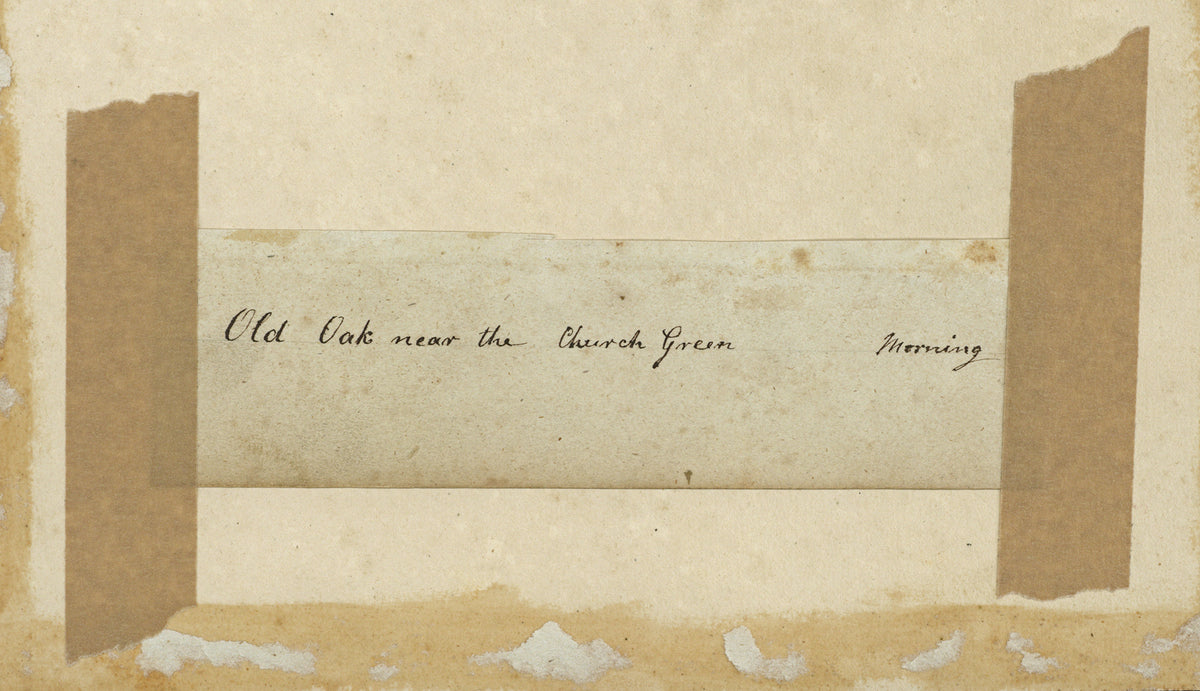 Old Oak near the Church Green Morning